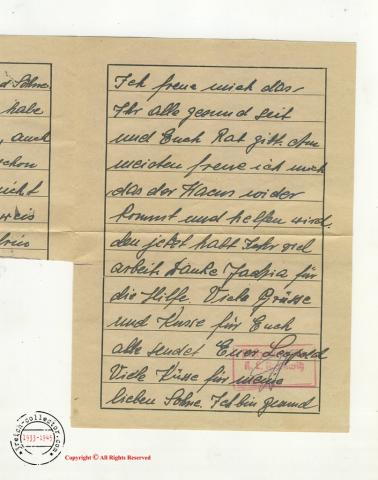 Sohne.
habe
, auch
schon
nicht
Ich freue mich das
Ihr alle gesund seit
und Euch Rat gibt. Am
meisten freue ich mich
das der Hans wider
kommt und helfen wird.
den jetzt habt Ihr viel
arbeit Danke Jadzia für
die Hilfe. Viele Grüsse
und Küsse für Euch
alle sendet Euer Leopold
Viele Küsse für meine
lieben Sohne. Ich bin gesund
reich-collector.com
1933-1945
Copyright © All Rights Reserved